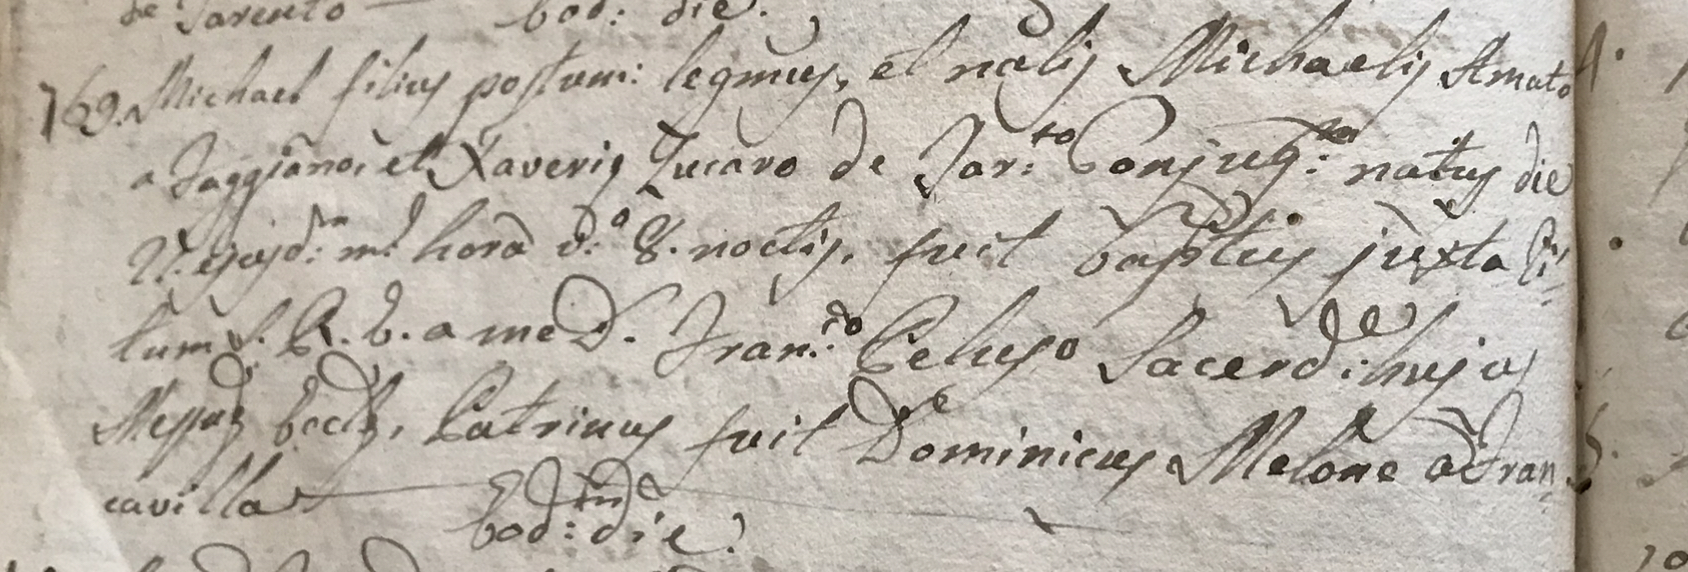 de Tarento — Eod: die.
769. Michael filius postum: legmus, et nalis Michaelis Amato
a Faggiano, et Xaveria Zucaro de Tar:to Conjug:m natus die
ejusd:m m: hora v:o 8. noctis, fuit baptus juxta Ri
tum S. R. E. a me D. Fran:co Peluso Sacerd:e hujus
Eccle, Patrinus fuit Dominicus Melone a Fran
cavilla
Eod:m die.